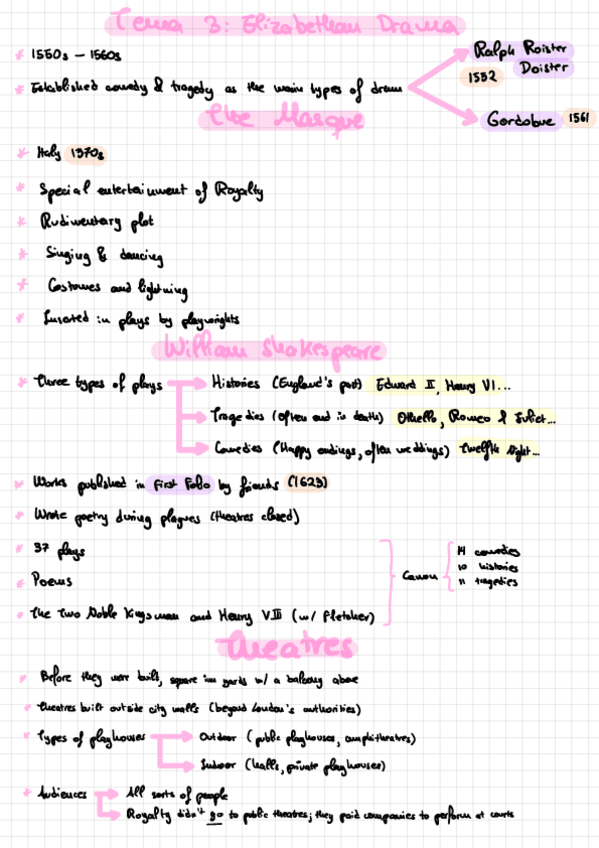 Tema 3: Elizabethan Drama
* 1550s – 1560s
Ralph Roister Doister
1552
* Established comedy & tragedy as the main types of dram
Gordobuc 1561
The Masque
* Italy 1370s
* Special entertainment of Royalty
* Rudimentary plot
* Singing & dancing
* Costumes and lightning
* Insated in plays by playwrights
William Shakespeare
* Three types of plays
Histories (England's past) Edward II, Henry VI...
Tragedies (Often end in death) Othello, Romeo & Juliet...
Comedies (Happy endings, often weddings) Twelfth Night...
* Works published in First Folio by friends (1623)
* Wrote poetry during plagues (theatres closed)
* 37 plays
* Poems
* The Two Noble Kingsman and Henry VIII (w/ Fletcher)
Canon
14 comedies
10 histories
11 tragedies
Theatres
* Before they were built, square inn yards w/ a balcony above
* Theatres built outside city walls (beyond London's authorities)
* Types of playhouses
Outdoor (public playhouses, amphitheatres)
Indoor (halls, private playhouses)
* Audiences
All sorts of people
Royalty didn't go to public theatres; they paid companies to perform at courts